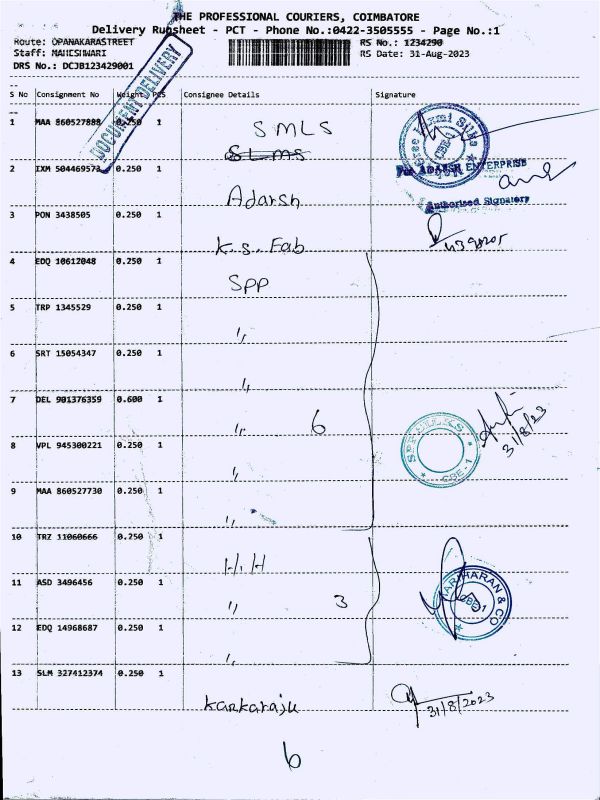 THE PROFESSIONAL COURIERS, COIMBATORE
Delivery Runsheet - PCT - Phone No.:0422-3505555 - Page No.:1
Route: OPANAKARASTREET RS No.: 1234290
Staff: MAHESHWARI RS Date: 31-Aug-2023
DRS No.: DCJB123429001
DOCUMENT DELIVERY
S No Consignment No Weight PCS Consignee Details Signature
1 MAA 860527888 0.250 1 SMLS
SLMS
CBE-1
2 IXM 504469573 0.250 1 Adarsh
For ADARSH ENTERPRISE
Authorised Signatory
3 PON 3438505 0.250 1 K.S. Fab
4 EDQ 10612048 0.250 1 SPP
5 TRP 1345529 0.250 1 ,,
6 SRT 15054347 0.250 1 ,,
7 DEL 901376359 0.600 1 ,, 6
31/8/23
8 VPL 945300221 0.250 1 ,,
CBE-1
9 MAA 860527730 0.250 1 ,,
10 TRZ 11060666 0.250 1 H.H
11 ASD 3496456 0.250 1 ,, 3
HARIHARAN & CO
CBE-1
12 EDQ 14968687 0.250 1 ,,
13 SLM 327412374 0.250 1 Kankaraju
31/8/2023
6